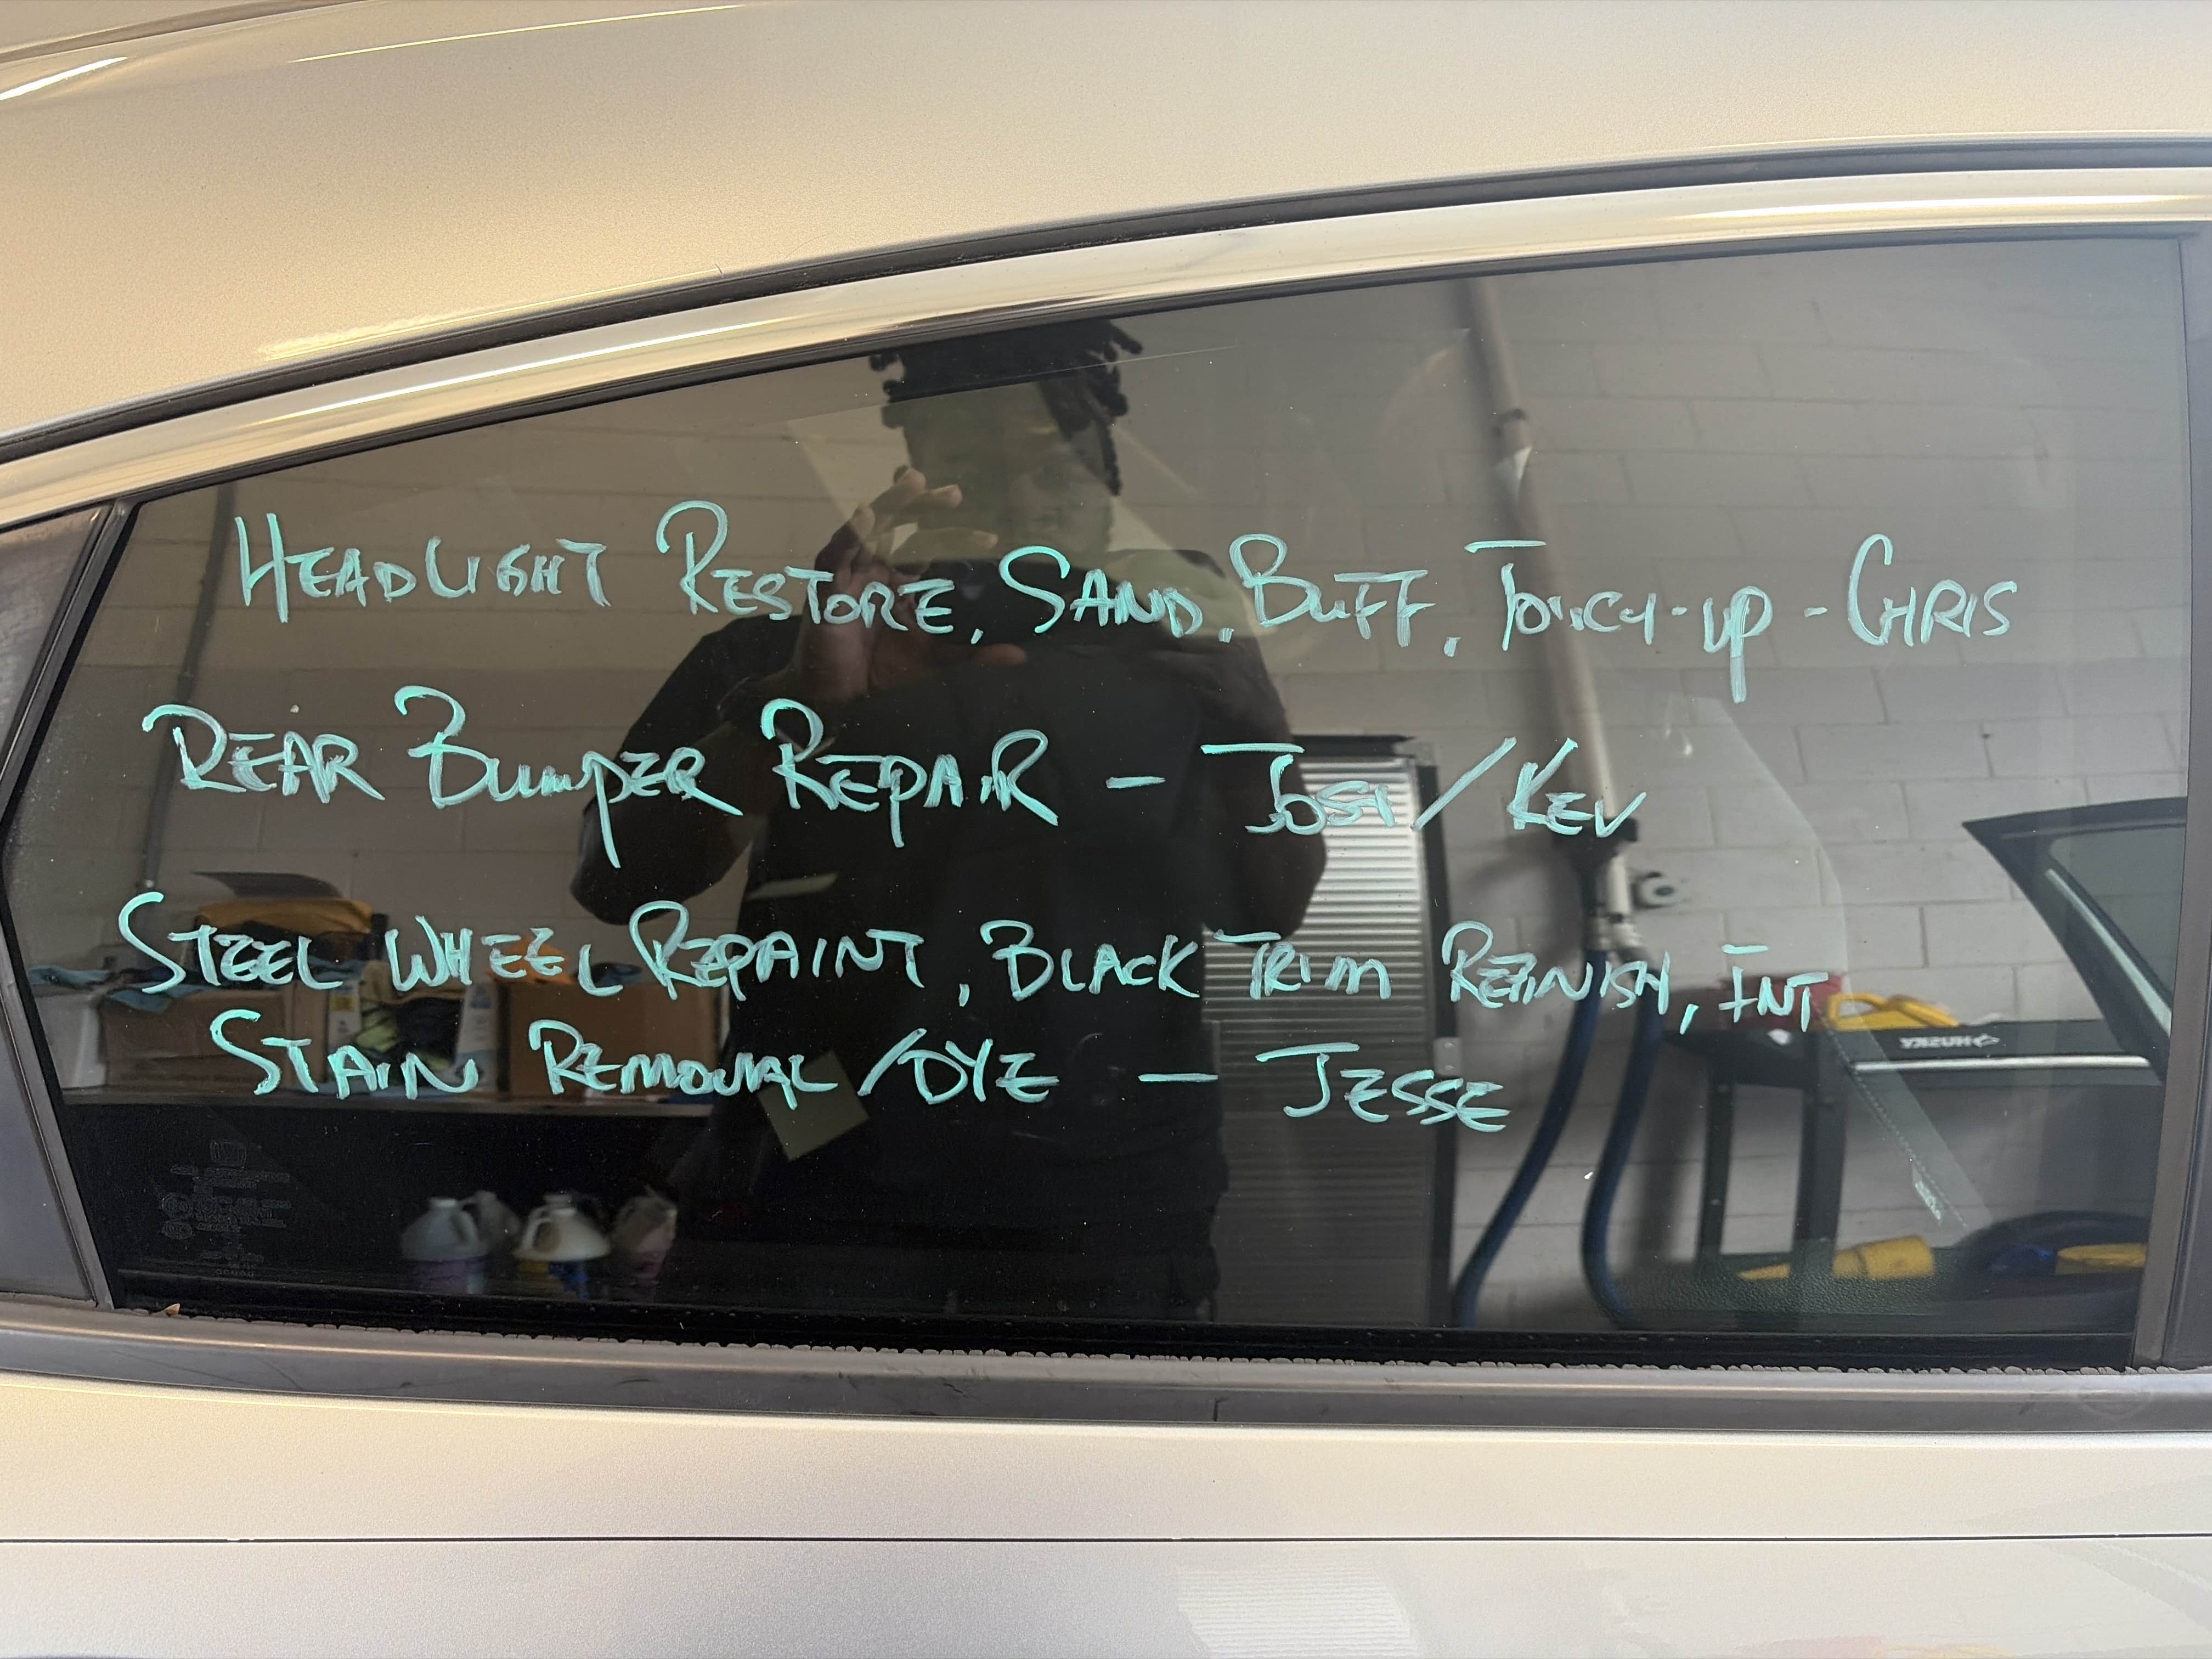 HEADLIGHT RESTORE, SAND, BUFF, TOUCH-UP - CHRIS
REAR BUMPER REPAIR — JOSH/KEV
STEEL WHEEL REPAINT, BLACK TRIM REFINISH, INT
STAIN REMOVAL/DYE — JESSE
HUSKY